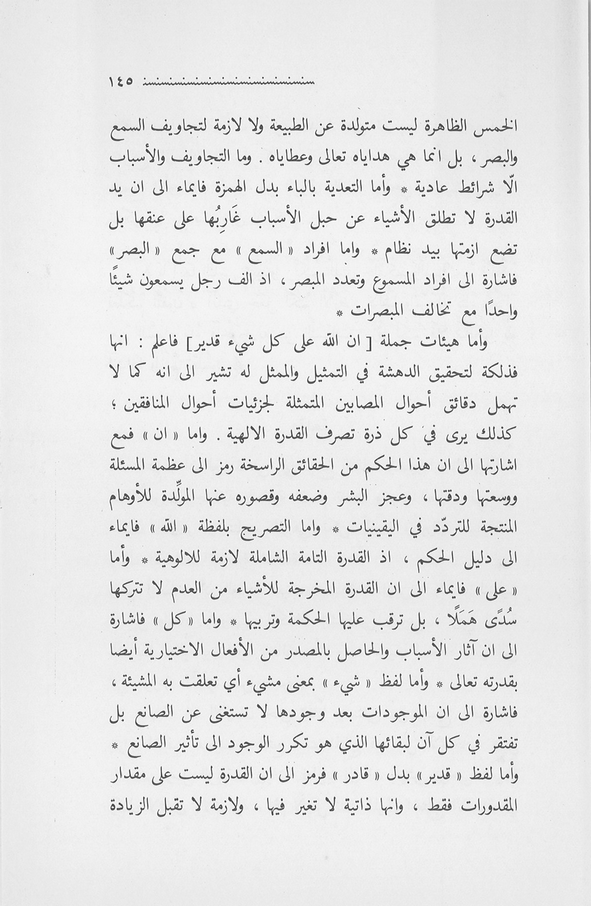 ١٤٥
الخمس الظاهرة ليست متولدة عن الطبيعة ولا لازمة لتجاويف السمع
والبصر ، بل انما هي هداياه تعالى وعطاياه . وما التجاويف والأسباب
الّا شرائط عادية * وأما التعدية بالباء بدل الهمزة فايماء الى ان يد
القدرة لا تطلق الأشياء عن حبل الأسباب غَارِبُها على عنقها بل
تضع ازمتها بيد نظام * واما افراد « السمع » مع جمع « البصر »
فاشارة الى افراد المسموع وتعدد المبصر ، اذ الف رجل يسمعون شيئًا
واحدًا مع تخالف المبصرات *
وأما هيئات جملة [ ان الله على كل شيء قدير] فاعلم : انها
فذلكة لتحقيق الدهشة في التمثيل والممثل له تشير الى انه كما لا
تهمل دقائق أحوال المصابين المتمثلة لجزئيات أحوال المنافقين ؛
كذلك يرى في كل ذرة تصرف القدرة الالهية . واما « ان » فمع
اشارتها الى ان هذا الحكم من الحقائق الراسخة رمز الى عظمة المسئلة
ووسعتها ودقتها ، وعجز البشر وضعفه وقصوره عنها المولِّدة للأوهام
المنتجة للتردّد في اليقينيات * واما التصريح بلفظة « الله » فايماء
الى دليل الحكم ، اذ القدرة التامة الشاملة لازمة للالوهية * وأما
« على » فايماء الى ان القدرة المخرجة للأشياء من العدم لا تتركها
سُدًى هَمَلًا ، بل ترقب عليها الحكمة وتربيها * واما « كل » فاشارة
الى ان آثار الأسباب والحاصل بالمصدر من الأفعال الاختيارية أيضا
بقدرته تعالى * وأما لفظ « شيء » بمعنى مشيء أي تعلقت به المشيئة ،
فاشارة الى ان الموجودات بعد وجودها لا تستغنى عن الصانع بل
تفتقر في كل آن لبقائها الذي هو تكرر الوجود الى تأثير الصانع *
وأما لفظ « قدير» بدل « قادر » فرمز الى ان القدرة ليست على مقدار
المقدورات فقط ، وانها ذاتية لا تغير فيها ، ولازمة لا تقبل الزيادة